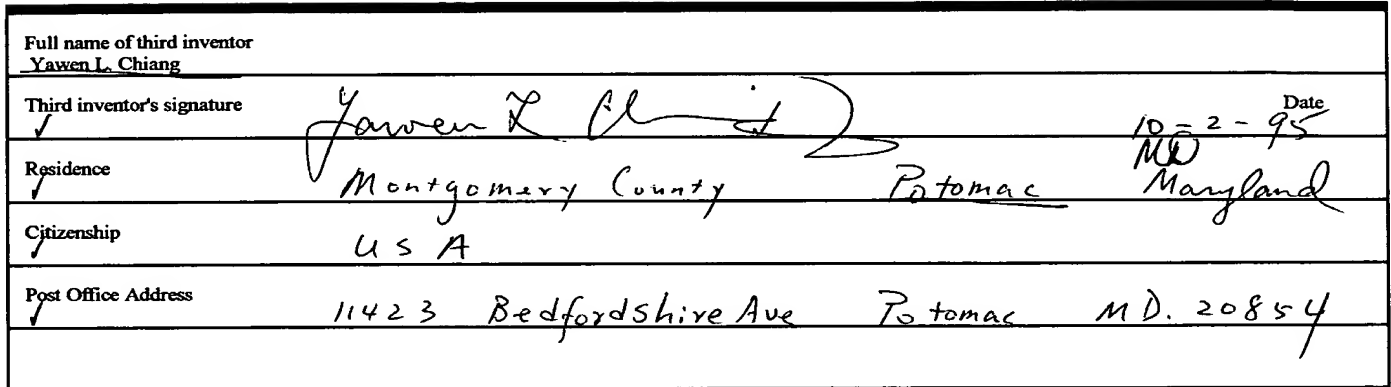 Full name of third inventor
Yawen L. Chiang
Third inventor's signature Yawen L Chiang Date
10-2-95
MD
Residence Montgomery County Potomac Maryland
Citizenship USA
Post Office Address 11423 Bedfordshire Ave Potomac MD. 20854